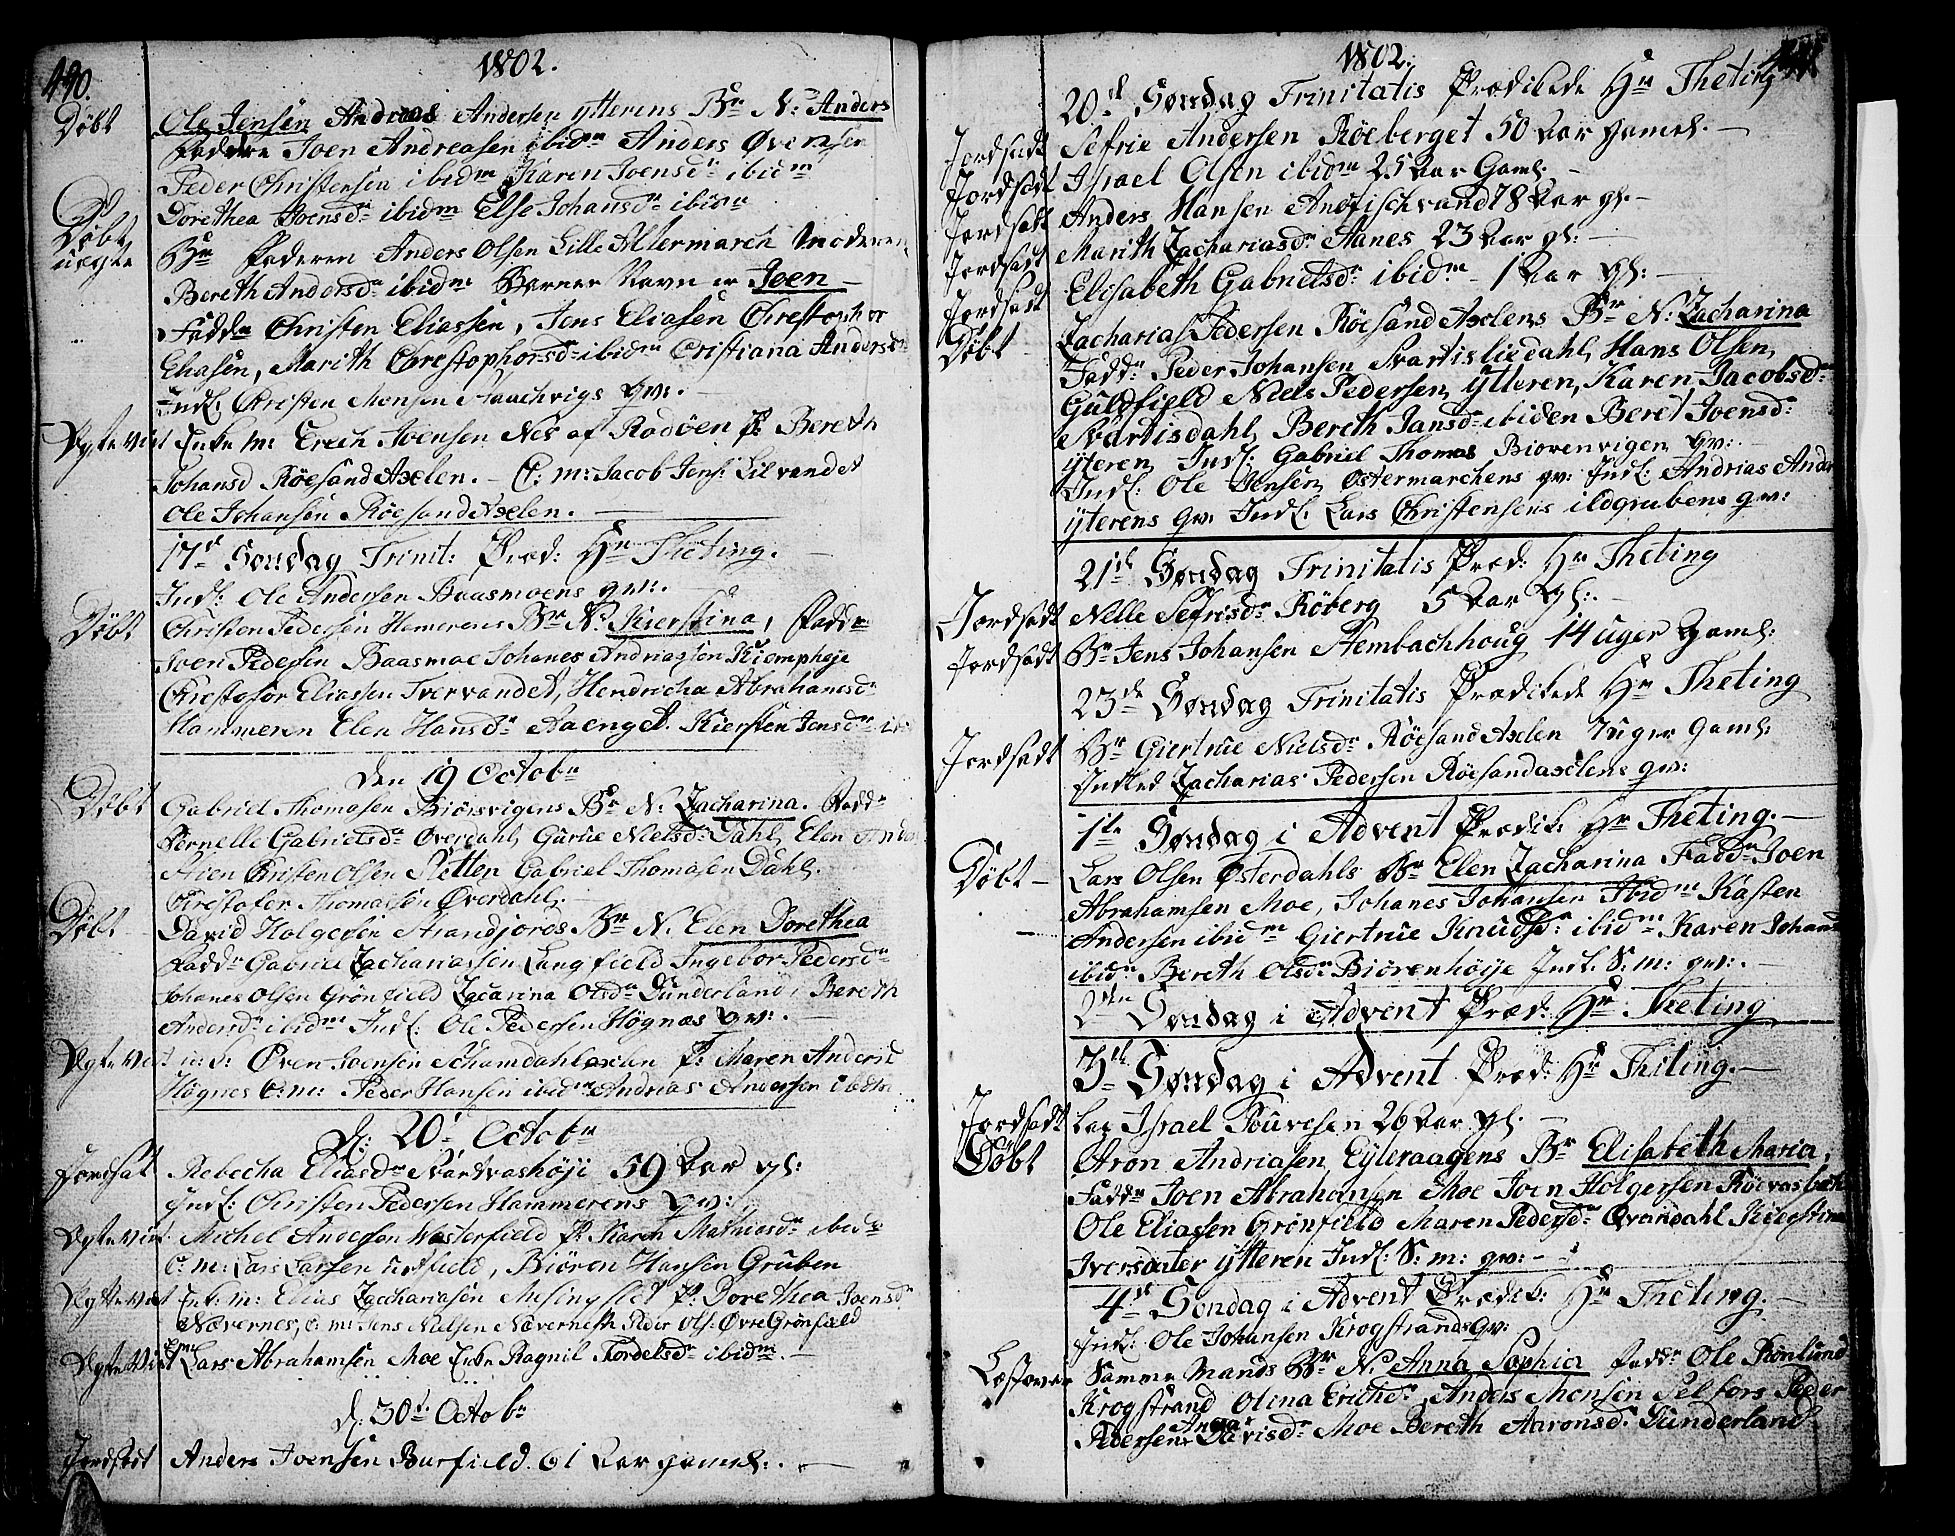 490.
1802.
Døbt Ole Jensen Andreas Andersen ytterens Bn N: Anders
Faddere Joen Andreasen ibidm Anders Øvensen
Peder Christensen ibidm Karen Joensdr ibidm
Dorethea Joensdr ibidm Else Johansdr ibidm
Døbt uegte Bn Faderen Anders Olsen Lille Altermarch Moderen
Bereth Andersdr ibidm Barnets Navn er Joen
Faddr Christen Eliassen, Jens Eliasen Christopher
Eliasen, Marith Christophersdr ibidm Cristiana Andersdr
Indl: Christen Monsen gv:
Ægte viet Enke m: Erich Joensen Nes af Rodøen P: Bereth
Johansd Røesand Axelen. C: m: Jacob Jens: Lilvandet
Ole Johansen Røesand Axelen.
17de Søndag Trinit: Præd: Hr Theting.
Indl: Ole Andersen Baasmoens gv:
Døbt Christen Pedersen Hamerens Bn N: Kierstina, Faddr
Joen Pedersen Baasmoe Johanes Andriassen Kiempheje
Christofor Eliassen Tvervandet, Hendricha Abrahamsdr
Hammeren Elen Hansdr Aaenget. Kiersten Jensdr
Den 19 Octobr
Døbt Gabriel Thomasen Biørsvigens Bn N: Zacharina. Faddr
Pernelle Gabrielsdr Overdahl, Gurue Nielsdr Dahl, Elen
Christen Olsen Sletten Gabriel Thomasen Dahl.
Christofer Thomassen Øverdahl:
Døbt David Holgersen Strandjords Bn N. Elen Dorethea
Faddr Gabriel Zachariassen Langfield Ingebor Pedersdr
Johanes Olsen Grönfield Zacarina Olsdr Dunderland, Bereth
Andersdr ibidm Indl: Ole Pedersen Høgnæs gv:
Ægte viet Øven Joensen P: Maren Andersd
Høgnes C: m: Peder Hansen ibidm Andrias Andersen ibidm
D: 20de Octobr
Jordsat Rebecha Eliasdr Svartvashøji 59 Aar gl:
Indl: Christen Pedersen Hammerens gv:
Ægte viet Michel Andersen Westerfield P: Karen Mathiasdr ibidm
C: m: Lars Larsen, Biören Hansen Gruben
Ægte viet Enk: m: Elias Zacchariasen Mesingslet P: Dorethea Joensdr
Nævernes, C: m: Jens Nielsen Næverneth Peder Ols: Øvre Grønfield
Ægte viet Lars Abrahamsen Moe Enke Ragnil Tordelsdr ibidm
d: 30te Octobr
Jordsat Anders Joensen Burfield. 61 Aar gamel:
1802.
20de Søndag Trinitatis Prædikede Hr Theting
Jordsadt Sefrie Andersen Røeberget 50 Aar gamel.
Jordsadt Israel Olsen ibidm 25 Aar Gaml:
Jordsadt Anders Hansen 78 Aar gl:
Jordsadt Marith Zachariasdr Aanes 23 Aar gl:
Jordsadt Elisabeth Gabrielsdr ibidm 1 Aar gl:
Døbt Zacharias Pedersen Röesand Axelens Bn N: Zacharina
Faddr Peder Johansen Svartisliedahl, Hans Olsen,
Guldfield Niels Pedersen, ytteren, Karen Jacobsdr
Svartisdahl, Bereth Jansdr ibiden Beret Joensdr
yteren, Indl: Gabriel Thomas Biørenvigen gv:
Indl: Ole Jensen Østermarchens gv: Indl: Andrias Andr
yterens gv. Indl: Lars Christensens ildgrubens gv:
21de Søndag Trinitatis Præd: Hr Theting
Jordsadt Nelle Sefrisdr Röberg 5 Aar gl:
Jordsadt Bn Jens Johansen Stembachhoug 14 uger gaml:
23de Søndag Trinitatis Prædikede Hr Theting
Jordsadt Bn Giertrue Nielsdr Röesand Axlen 7 uger Gaml:
Indled Zacharias Pedersen Röesandaxelens gv:
1ste Søndag i Advent Prædik: Hr Theting.
Døbt Lars Olsen Østerdahls Bn Elen Zacharina Faddr Joen
Abrahamsen Moe, Johanes Johansen Ibidm Kasten
Andersen ibidm Giertrue Knudsd: ibidm Karen Johans
ibidm Bereth Olsdr Biörenhöije Indl: S: m: gv:
2den Søndag i Advent Præd: Hr Theting
3de Søndag i Advent Præd: Hr Theting.
Jordsadt Lap Israel Pouvesen 26 Aar gl:
Døbt Aron Andriasen, Eyteraagens Br Elisabeth Maria,
Faddr Joen Abrahansen Moe Joen Holgersen
Ole Eliasen Grønfield Maren Pedersdr Øverdahl Kirstina
Iversdater ytteren Indl: S: m: gv:
4de Søndag i Advent Prædik: Hr Theting.
Indl: Ole Johansen Krogstrands gv:
Læst over Samme Mands Br N: Anna Sophia Faddr Ole Rönlund
Krogstrand Olina Erichdr, Anders Monsen Selfors Peder
Pedersen Anna Davisdr Moe Bereth Aaronsd: Dunderland